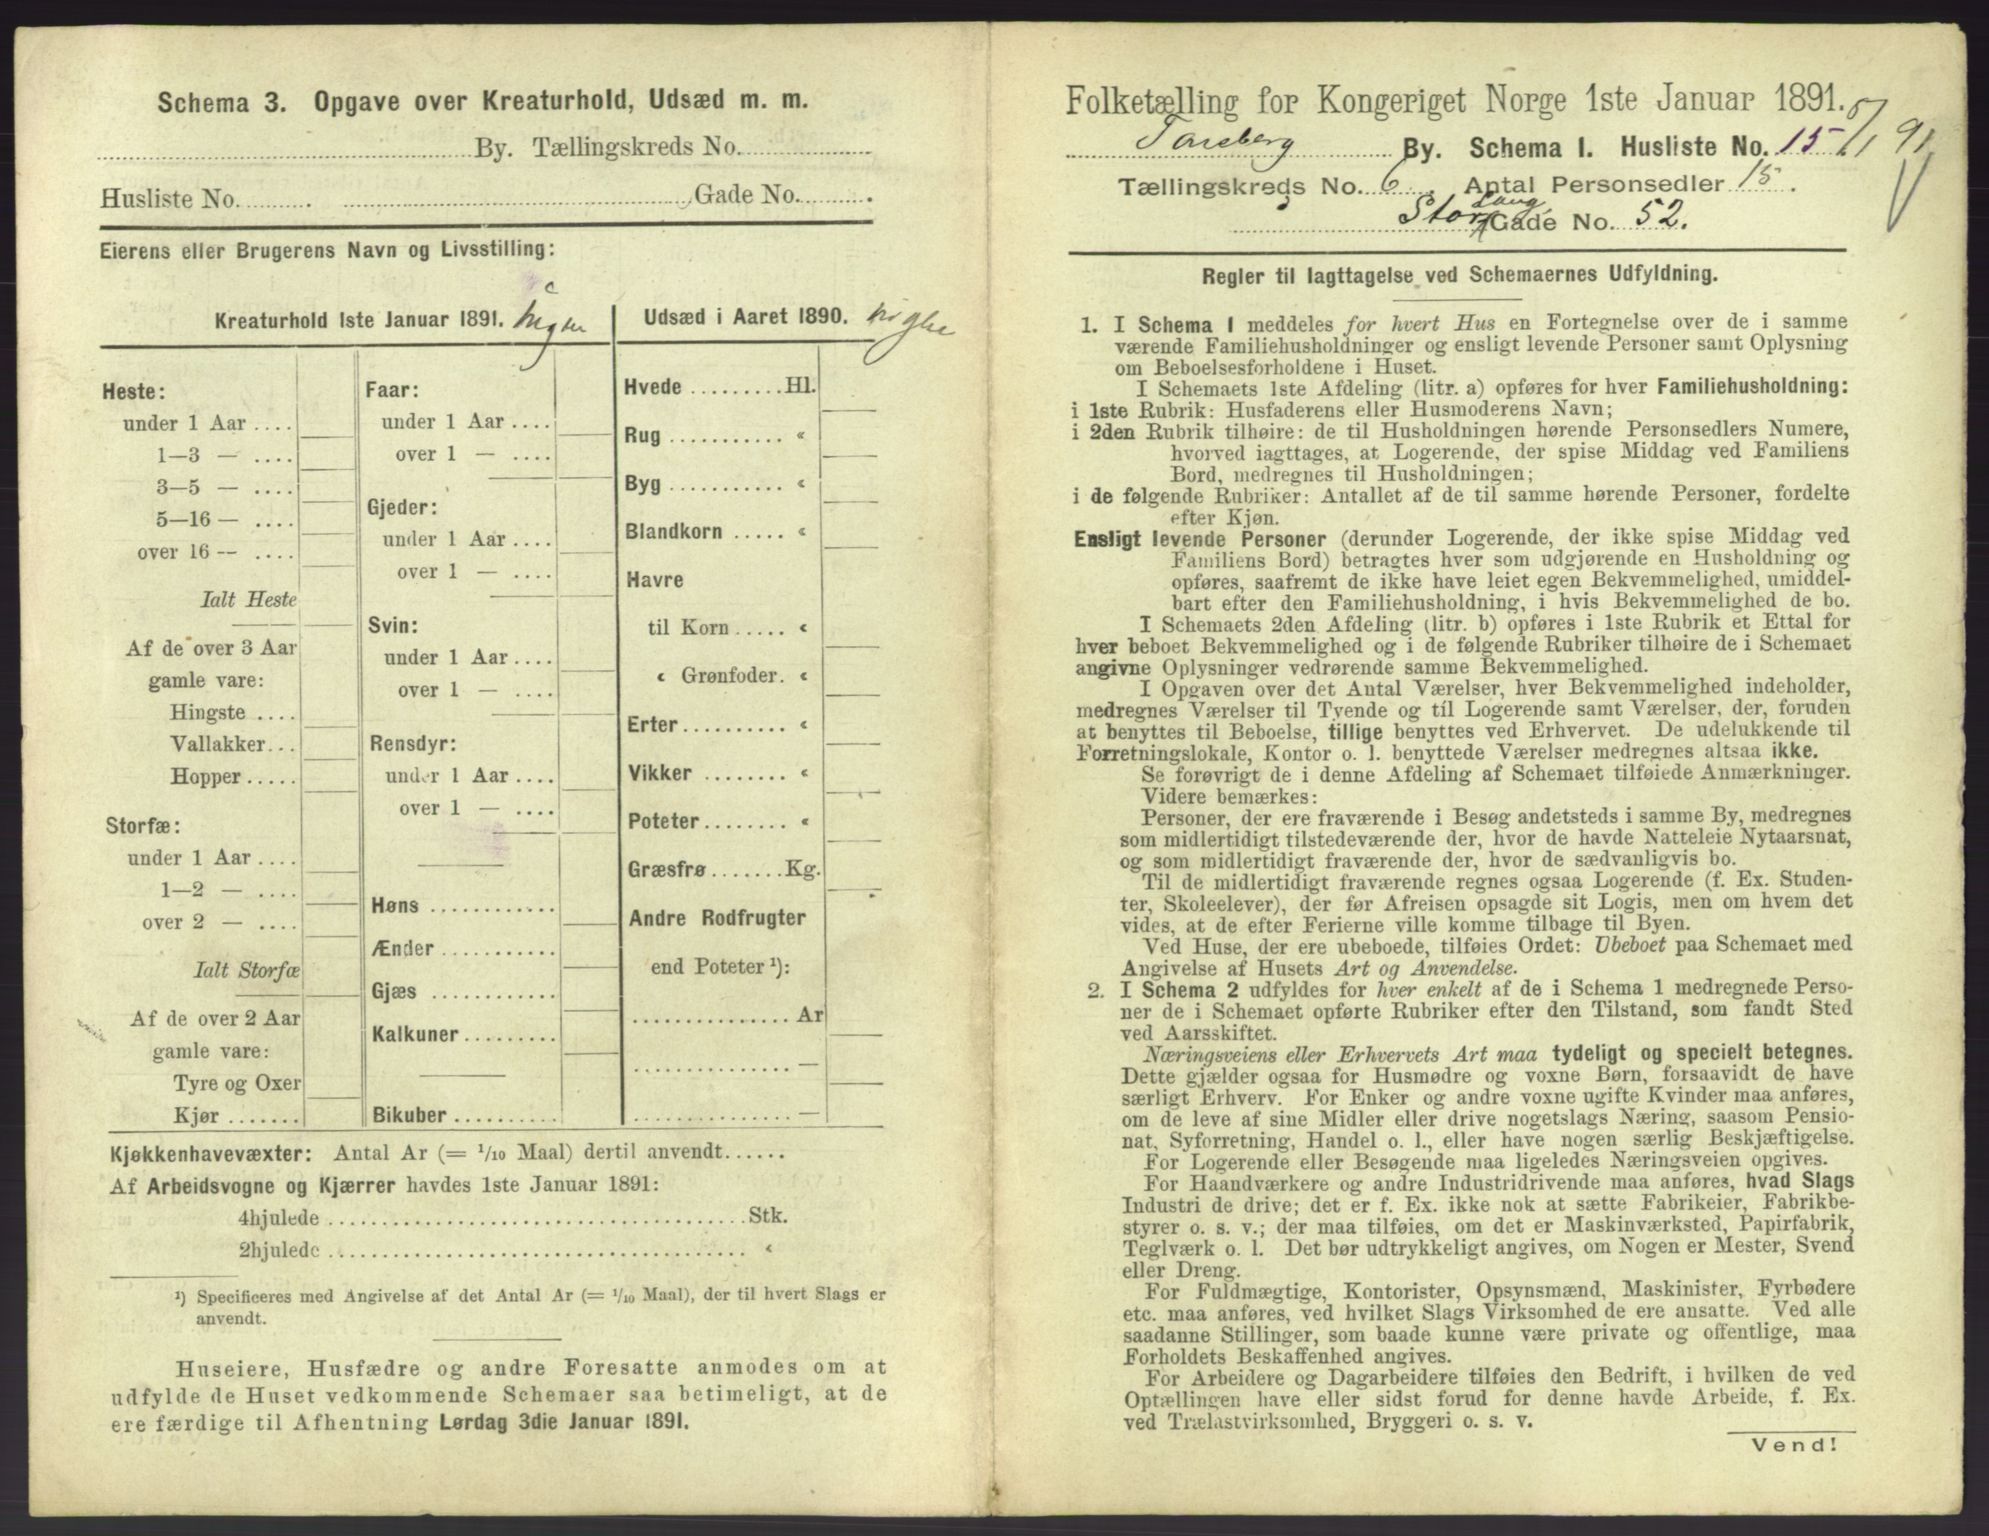 Schema 3. Opgave over Kreaturhold, Udsæd m. m.
By. Tællingskreds No.
Husliste No. . Gade No. .
Eierens eller Brugerens Navn og Livsstilling:
Kreaturhold 1ste Januar 1891. Ingen
Heste:
under 1 Aar ....
1—3 — ....
3—5 — ....
5—16 — ....
over 16 — ....
Ialt Heste
Af de over 3 Aar
gamle vare:
Hingste ....
Vallakker...
Hopper .....
Storfæ:
under 1 Aar ....
1—2 — ....
over 2 — ....
Ialt Storfæ
Af de over 2 Aar
gamle vare:
Tyre og Oxer
Kjør .......
Faar:
under 1 Aar ....
over 1 — ....
Gjeder:
under 1 Aar ....
over 1 — ....
Svin:
under 1 Aar ....
over 1 — ....
Rensdyr:
under 1 Aar ....
over 1 — ....
Høns ............
Ænder ...........
Gjæs ............
Kalkuner .........
Bikuber ..........
Udsæd i Aaret 1890.
Hvede .........Hl.
Rug ........... «
Byg ........... «
Blandkorn ..... «
Havre
til Korn ..... «
« Grønfoder. «
Erter .......... «
Vikker ........ «
Poteter ........ «
Græsfrø .......Kg.
Andre Rodfrugter
end Poteter ¹):
............... Ar
............... —
............... —
Kjøkkenhavevæxter: Antal Ar (= 1/10 Maal) dertil anvendt......
Af Arbeidsvogne og Kjærrer havdes 1ste Januar 1891:
4hjulede ....................................... Stk.
2hjulede ....................................... «
¹) Specificeres med Angivelse af det Antal Ar (= 1/10 Maal), der til hvert Slags er
anvendt.
Huseiere, Husfædre og andre Foresatte anmodes om at
udfylde de Huset vedkommende Schemaer saa betimeligt, at de
ere færdige til Afhentning Lørdag 3die Januar 1891.
Folketælling for Kongeriget Norge 1ste Januar 1891.
Tønsberg By. Schema I. Husliste No. 15
Tællingskreds No. 6. Antal Personsedler 15.
Stor Lang Gade No. 52.
Regler til Iagttagelse ved Schemaernes Udfyldning.
1. I Schema 1 meddeles for hvert Hus en Fortegnelse over de i samme
værende Familiehusholdninger og ensligt levende Personer samt Oplysning
om Beboelsesforholdene i Huset.
I Schemaets 1ste Afdeling (litr. a) opføres for hver Familiehusholdning:
i 1ste Rubrik: Husfaderens eller Husmoderens Navn;
i 2den Rubrik tilhøire: de til Husholdningen hørende Personsedlers Numere,
hvorved iagttages, at Logerende, der spise Middag ved Familiens
Bord, medregnes til Husholdningen;
i de følgende Rubriker: Antallet af de til samme hørende Personer, fordelte
efter Kjøn.
Ensligt levende Personer (derunder Logerende, der ikke spise Middag ved
Familiens Bord) betragtes hver som udgjørende en Husholdning og
opføres, saafremt de ikke have leiet egen Bekvemmelighed, umiddel-
bart efter den Familiehusholdning, i hvis Bekvemmelighed de bo.
I Schemaets 2den Afdeling (litr. b) opføres i 1ste Rubrik et Ettal for
hver beboet Bekvemmelighed og i de følgende Rubriker tilhøire de i Schemaet
angivne Oplysninger vedrørende samme Bekvemmelighed.
I Opgaven over det Antal Værelser, hver Bekvemmelighed indeholder,
medregnes Værelser til Tyende og til Logerende samt Værelser, der, foruden
at benyttes til Beboelse, tillige benyttes ved Erhvervet. De udelukkende til
Forretningslokale, Kontor o. l. benyttede Værelser medregnes altsaa ikke.
Se forøvrigt de i denne Afdeling af Schemaet tilføiede Anmærkninger.
Videre bemærkes:
Personer, der ere fraværende i Besøg andetsteds i samme By, medregnes
som midlertidigt tilstedeværende der, hvor de havde Natteleie Nytaarsnat,
og som midlertidigt fraværende der, hvor de sædvanligvis bo.
Til de midlertidigt fraværende regnes ogsaa Logerende (f. Ex. Studen-
ter, Skoleelever), der før Afreisen opsagde sit Logis, men om hvem det
vides, at de efter Ferierne ville komme tilbage til Byen.
Ved Huse, der ere ubeboede, tilføies Ordet: Ubeboet paa Schemaet med
Angivelse af Husets Art og Anvendelse.
2. I Schema 2 udfyldes for hver enkelt af de i Schema 1 medregnede Perso-
ner de i Schemaet opførte Rubriker efter den Tilstand, som fandt Sted
ved Aarsskiftet.
Næringsveiens eller Erhvervets Art maa tydeligt og specielt betegnes.
Dette gjælder ogsaa for Husmødre og voxne Børn, forsaavidt de have
særligt Erhverv. For Enker og andre voxne ugifte Kvinder maa anføres,
om de leve af sine Midler eller drive nogetslags Næring, saasom Pensio-
nat, Syforretning, Handel o. l., eller have nogen særlig Beskjæftigelse.
For Logerende eller Besøgende maa ligeledes Næringsveien opgives.
For Haandværkere og andre Industridrivende maa anføres, hvad Slags
Industri de drive; det er f. Ex. ikke nok at sætte Fabrikeier, Fabrikbe-
styrer o. s. v.; der maa tilføies, om det er Maskinværksted, Papirfabrik,
Teglværk o. l. Det bør udtrykkeligt angives, om Nogen er Mester, Svend
eller Dreng.
For Fuldmægtige, Kontorister, Opsynsmænd, Maskinister, Fyrbødere
etc. maa anføres, ved hvilket Slags Virksomhed de ere ansatte. Ved alle
saadanne Stillinger, som baade kunne være private og offentlige, maa
Forholdets Beskaffenhed angives.
For Arbeidere og Dagarbeidere tilføies den Bedrift, i hvilken de ved
Optællingen have eller sidst forud for denne havde Arbeide, f. Ex.
ved Trælastvirksomhed, Bryggeri o. s. v.
Vend!